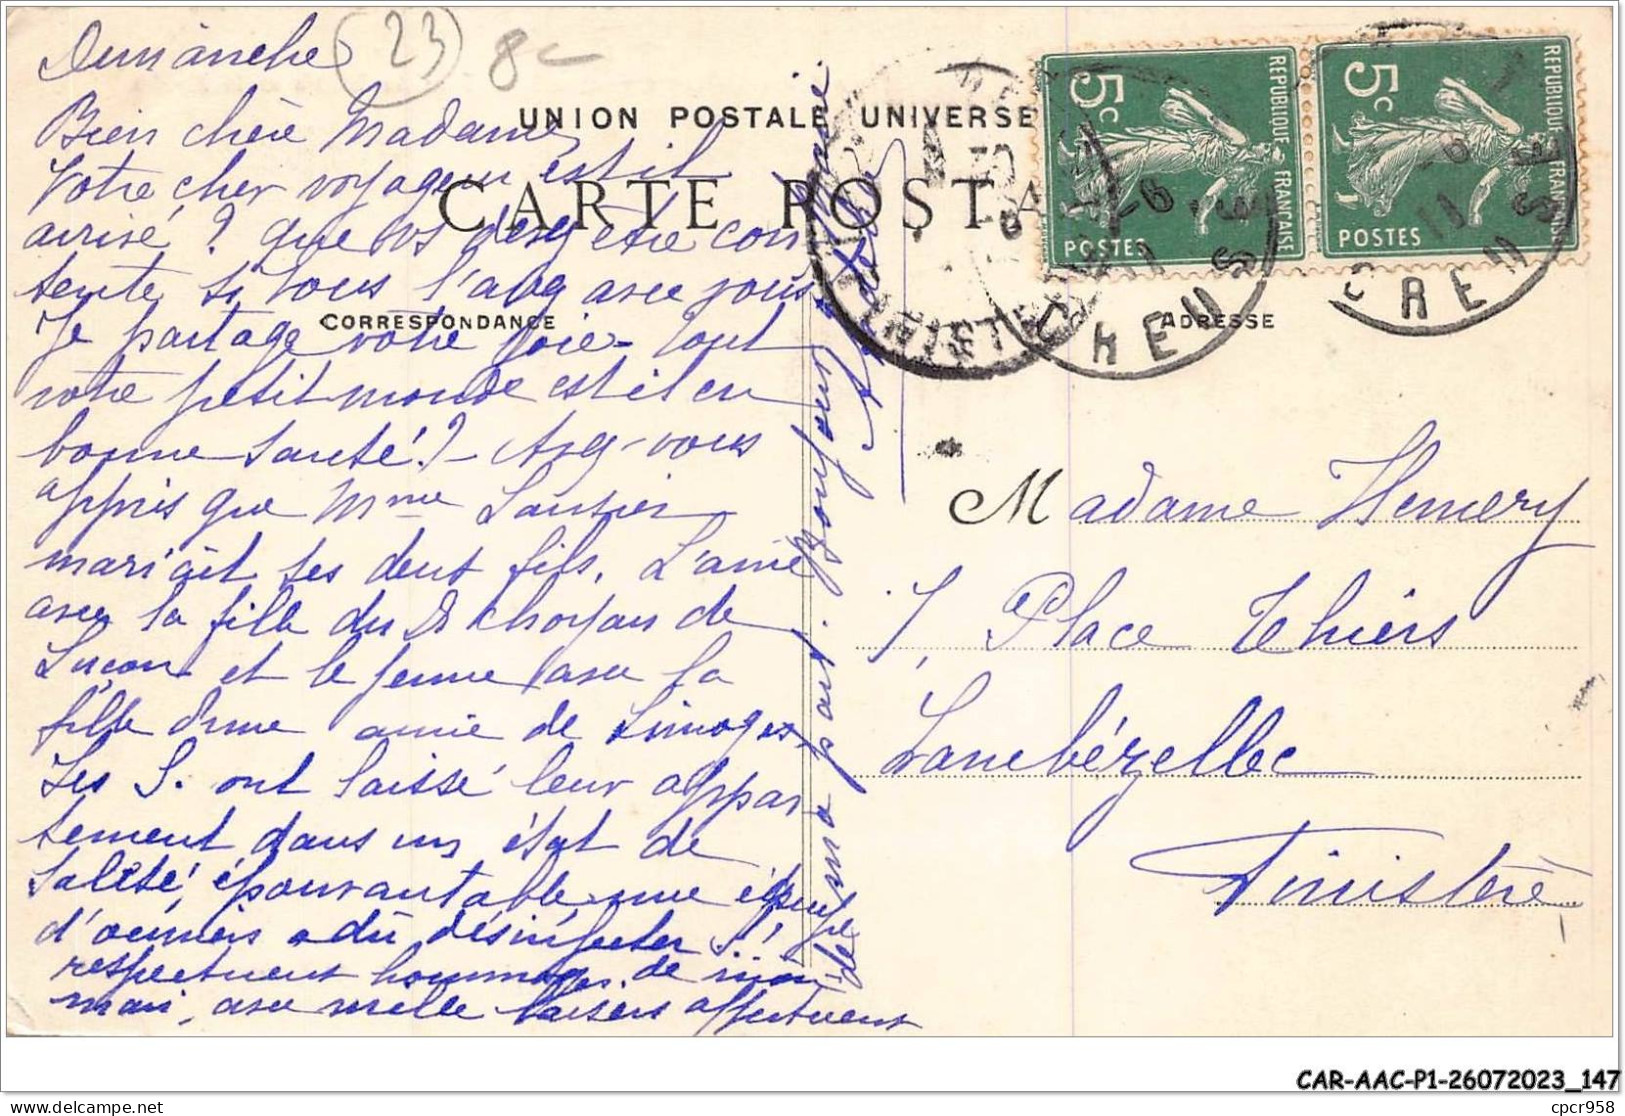 Dimanche
23
8
UNION POSTALE UNIVERSE
CARTE POSTA
CORRESPONDANCE
ADRESSE
5c
REPUBLIQUE FRANÇAISE
POSTES
5c
REPUBLIQUE FRANÇAISE
POSTES
CREUSE
CREUSE
Bien chère Madame,
Votre cher voyageur est il
arrivé ? que vs devez être con
tente si vous l'avez avec vous.
Je partage votre joie - tout
votre petit monde est il en
bonne santé ? - Avez-vous
appris que Mme
mariait ses deux fils. L'ainé
avec la fille du Dr de
Luçon et le jeune avec la
fille d'une amie de Limoges
Les S. ont laissé leur appar
tement dans un état de
saleté, épouvantable une équipe
d'ouvriers a dû désinfecter !
respectueux hommages de mon
mari, avec mille baisers affectueux
de ma part. Bonjour à
M adame Hemery
7, Place Thiers
Lambézellec
Finistère
CAR-AAC-P1-26072023_147
delcampe.net
cpcr958